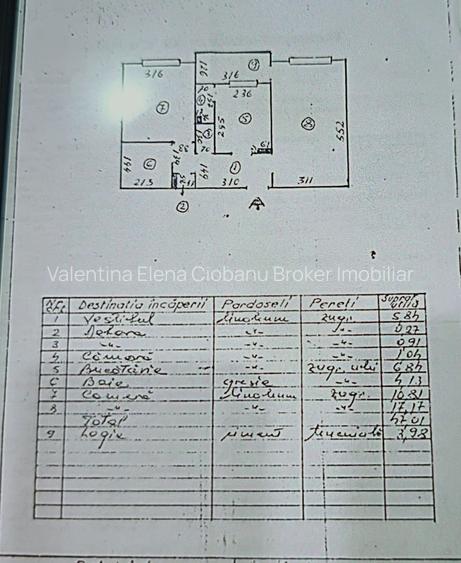 316
126
316
9
70
236
7
5
295
8
552
61
88
70
144
6
134
1
144
213
310
311
2
A
Valentina Elena Ciobanu Broker Imobiliar
Nr. crt. Destinatia încăperii Pardoseli Pereti Supraf. utilă
1 Vestibul linoleum zugr. 5.84
2 Debara -"- -"- 0.27
3 -"- -"- -"- 0.91
4 Cămară -"- -"- 1.04
5 Bucătărie -"- zugr. ulei 6.84
6 Baie gresie -"- 4.13
7 Cameră linoleum zugr. 10.81
8 -"- -"- -"- 17.17
Total 47.01
9 Logie ciment 3.98